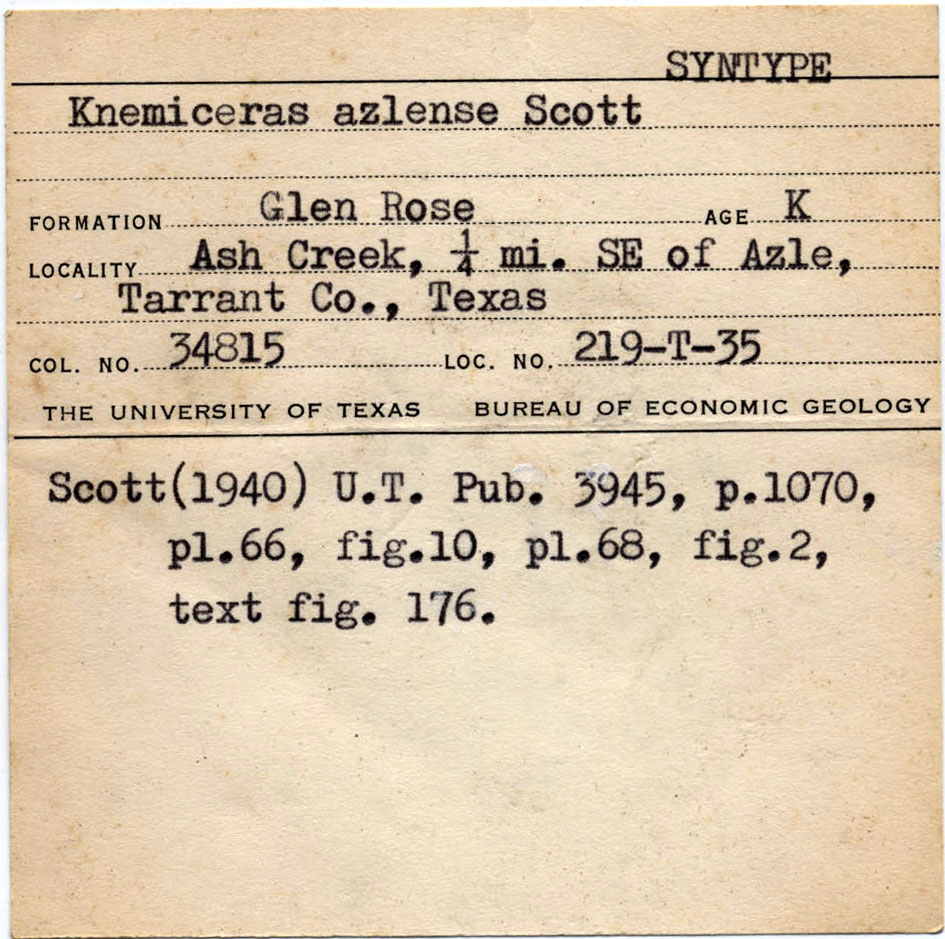 SYNTYPE
Knemiceras azlense Scott
FORMATION Glen Rose AGE K
LOCALITY Ash Creek, ¼ mi. SE of Azle,
Tarrant Co., Texas
COL. NO. 34815 LOC. NO. 219-T-35
THE UNIVERSITY OF TEXAS BUREAU OF ECONOMIC GEOLOGY
Scott(1940) U.T. Pub. 3945, p.1070,
pl.66, fig.10, pl.68, fig.2,
text fig. 176.